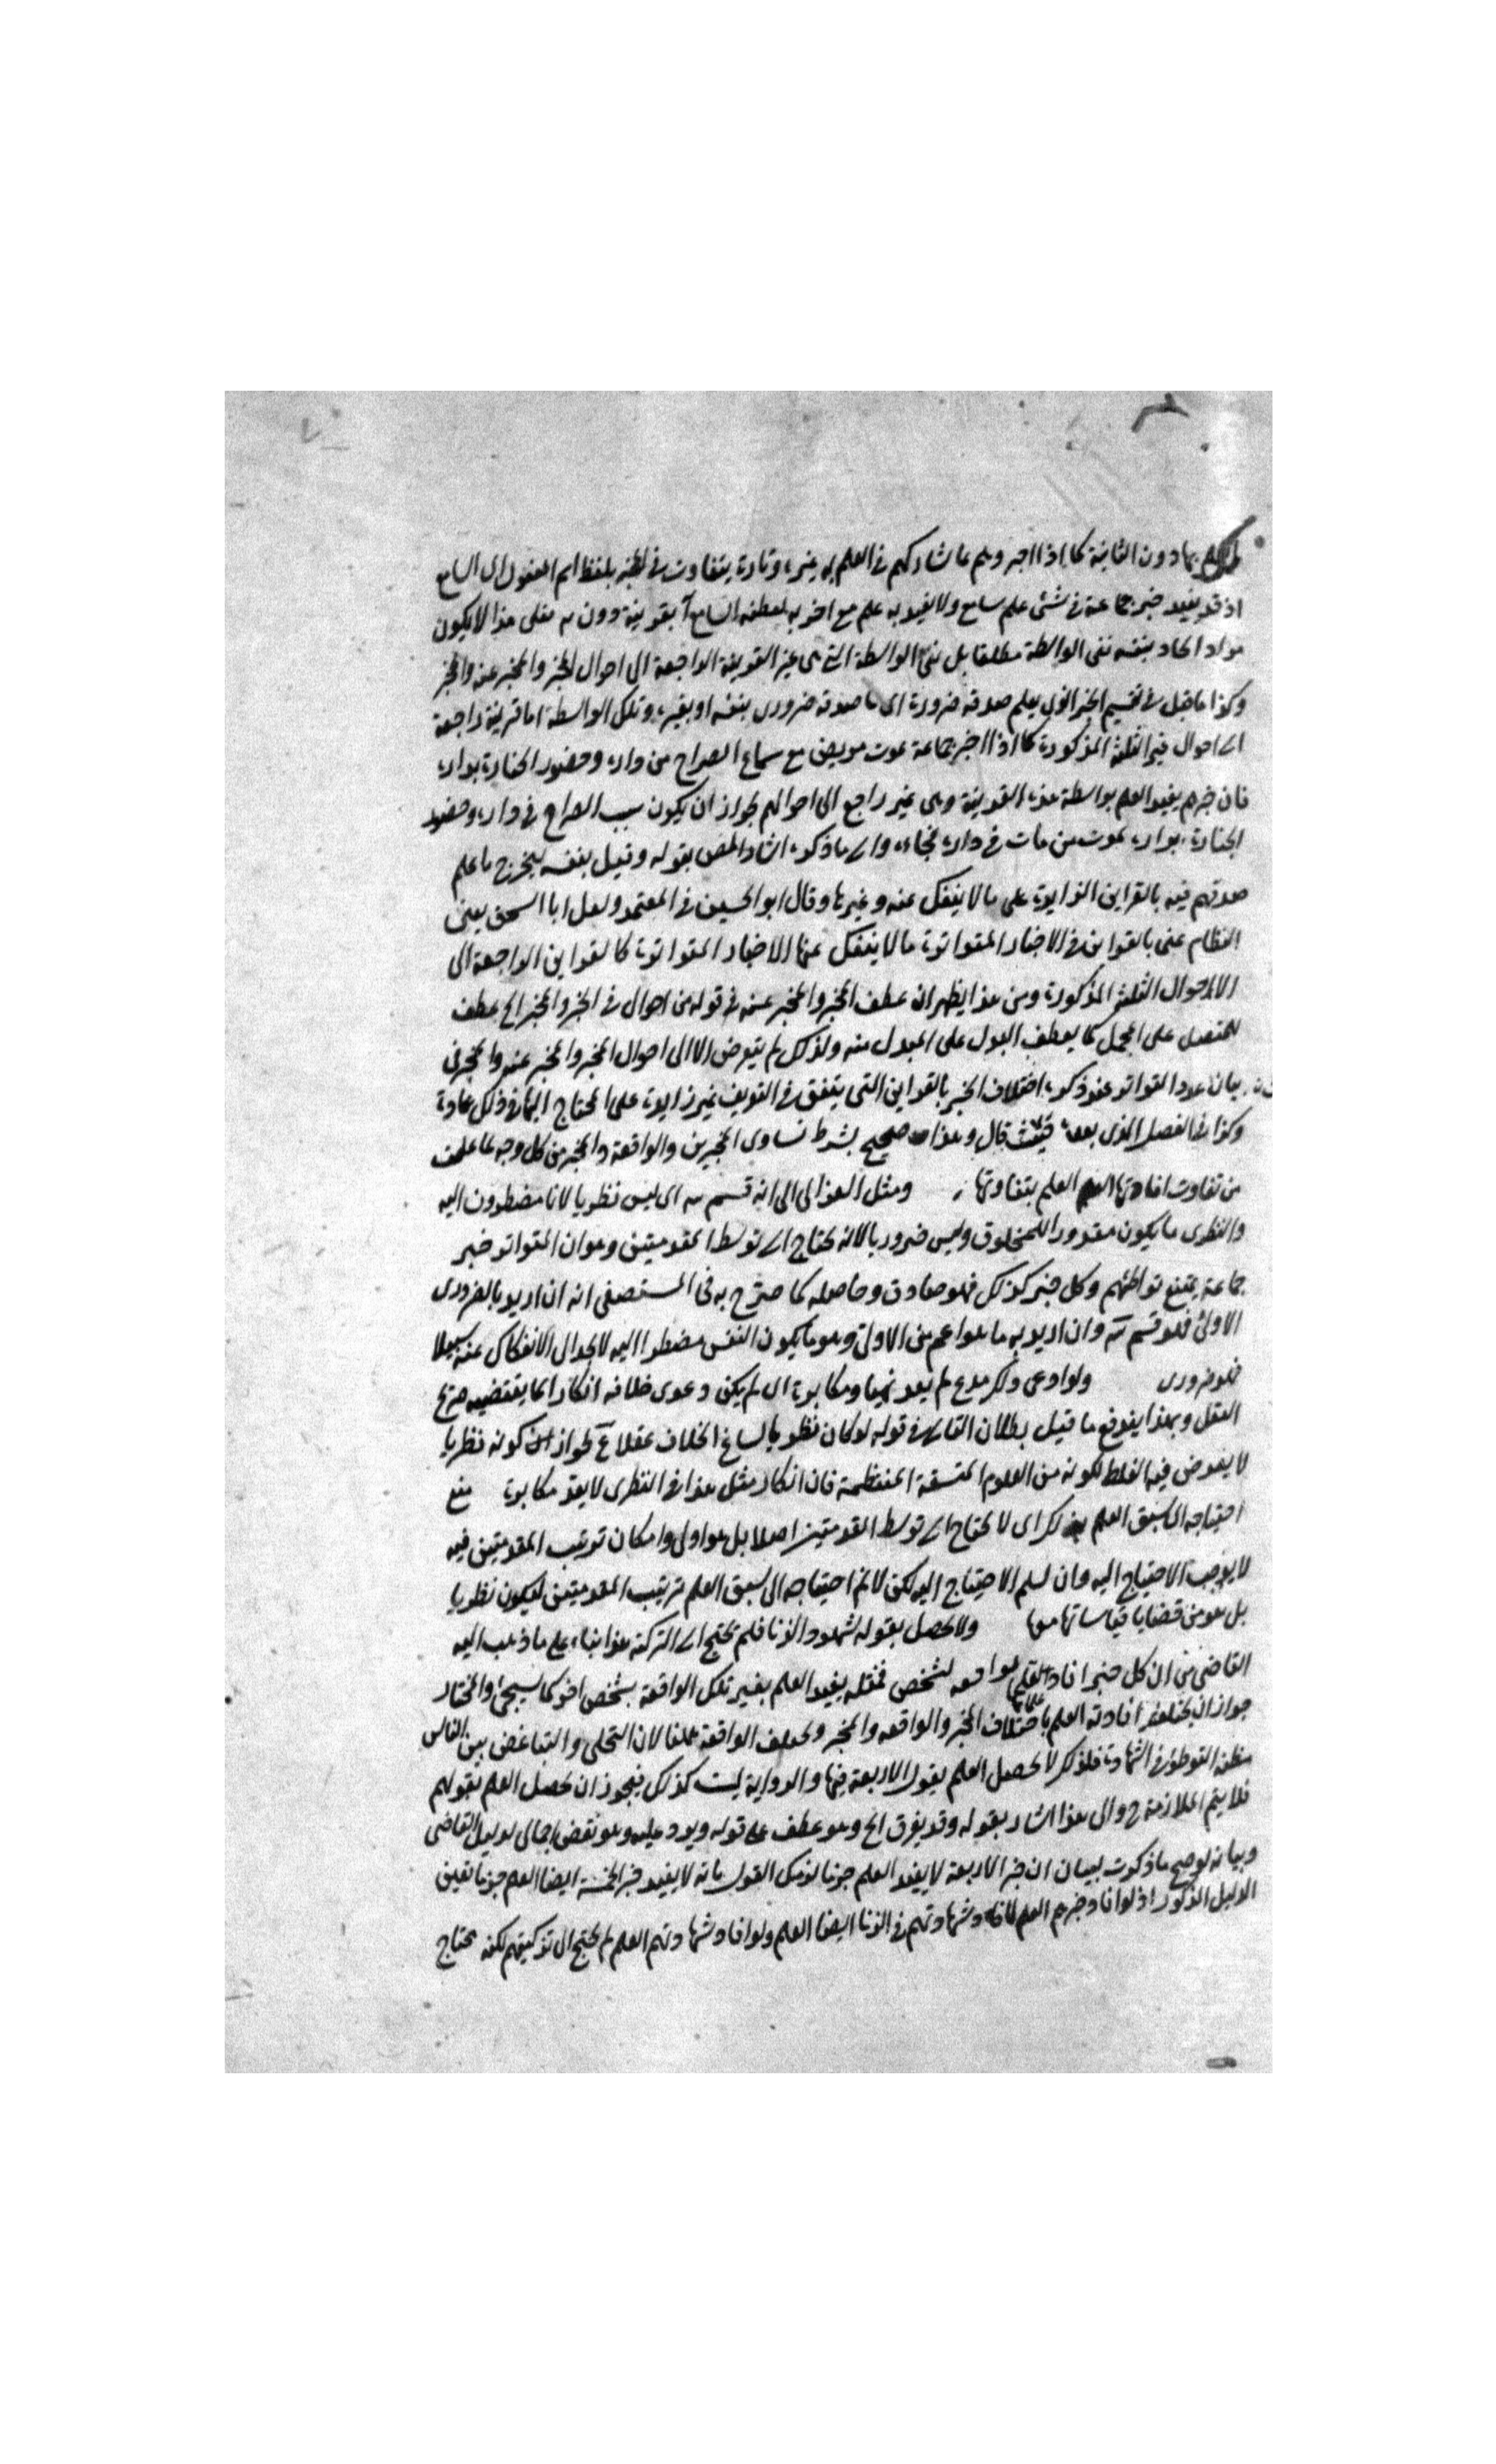 بها دون الثانية كما اذا اخبروهم عما شاركهم فى العلم به غيره وتارة يتفاوت فى المخبر بلفظ اسم المفعول اى السامع
اذ قد يفيد خبر جماعة فى شئ علم سامع ولا يفيد به علم سامع اخر به بقرينة دون فعلى هذا لا يكون
مراد الحاد بنفسه نفى الواسطة مطلقا بل نفى الواسطة التى هى غير القرينة الراجعة الى احوال المخبر والمخبر عنه والخبر
وكذا ما قيل فى تقسيم الخبر الذى يعلم صدقه ضرورة اى ما صدقه ضرورى بنفسه او بغيره وتلك الواسطة اما قرينة راجعة
الى احوال غير الثلثة المذكورة كما اذا اخبر جماعة بموت مريض مع سماع الصراخ من داره وحضور الجنازة بداره
فان خبرهم يفيد العلم بواسطة هذه القرينة وهى غير راجع الى احوالهم لجواز ان يكون سبب الصراخ فى داره وحضور
الجنازة بداره بموت من مات فى داره فجاءه والى ما ذكره اشار المص بقوله وقيل بنفسه ليخرج ما علم
صدقهم فيه بالقراين الزايدة على ما لا ينفك عنه وغيرها وقال ابو الحسين فى المعتمد ولعل ابا اسحق يعنى
النظام عنى بالقراين فى الاخبار المتواترة ما لا ينفك عنها الاخبار المتواترة كالقراين الراجعة الى
الاحوال الثلث المذكورة ومن هذا يظهر ان عطف المخبر والمخبر عنه فى قوله من احوال فى الخبر والمخبر الخ عطف
المفصل على المجمل كما يعطف البدل على المبدل منه ولذلك لم يتعرض الا الى احوال المخبر والمخبر عنه والمخبر فى
بيان عدد التواتر عند ذكره اختلاف الخبر بالقراين التى يتفق فى التعريف غير زايدة على المحتاج اليها فى ذلك عادة
وكذا فى الفصل الذى بعده حيث قال وهذا صحيح بشرط تساوى المخبرين والواقعة والمخبر من كل وجه لما علمت
من تفاوت افادتها العلم بتفاوتها ومثل الغزالى الى انه قسم اى ليس نظريا لانا مضطرون اليه
والنظرى ما يكون مقدورا للمخلوق وليس ضروريا لانه يحتاج الى توسط المقدمتين وهو ان المتواتر خبر
جماعة يمتنع تواطئهم وكل خبر كذلك فهو صادق وحاصله كما صرح به فى المستصفى انه ان اريد بالضرورى
الاولى فهو قسم وان اريد به ما هو اعم من الاولى وهو ما يكون النفس مضطرا اليه لا يجد الى الانفكاك عنه سبيلا
فهو ضرورى ولو ادعى ذلك مدع لم يعد بهتا ومكابرة اى لم يكن دعوى خلافه انكارا لما يقتضيه صريح
العقل وبهذا يندفع ما قيل بطلان التالى فى قوله لو كان نظريا لساغ الخلاف عقلا لجواز كونه نظريا
لا يعرض فيه الغلط لكونه من العلوم المتسقة المنتظمة فان انكار مثل هذا فى النظرى لا يعد مكابرة منع
احتياجه الى سبق العلم بذلك اى لا يحتاج الى توسط المقدمتين اصلا بل هو اولى وامكان ترتيب المقدمتين فيه
لا يوجب الاحتياج اليه وان سلم الاحتياج اليه لكن لا نم احتياجه الى سبق العلم بترتيب المقدمتين ليكون نظريا
بل هو من قضايا قياساتها معها ولا يحصل بقوله شهود الزنا فلم يحتج الى التزكية هذا بناء على ما ذهب اليه
القاضى من ان كل خبر افاد العلم بواقعة لشخص فمثله يفيد العلم بغير تلك الواقعة بشخص اخر كما سيجئ والمختار
جواز ان يختلف افادته العلم باختلاف المخبر والواقعة والمخبر ويختلف الواقعة ههنا لان التحلى والتباغض بين الناس
مظنة التوطؤ فى الشهادة فلذلك لا يحصل العلم بقول الاربعة فيها والرواية ليست كذلك فيجوز ان يحصل العلم بقولهم
فلا يتم الملازمة ح والى هذا اشار بقوله وقد يفرق الخ وهو عطف على قوله ويرد عليه وهو نقض اجمالى لدليل القاضى
وبيانه لو صح ما ذكرت لبيان ان خبر الاربعة لا يفيد العلم جزما لزمك القول بانه لا يفيد خبر الخمسة ايضا العلم جزما بعين
الدليل المذكور اذ لو افاد خبرهم العلم لافاد شهادتهم فى الزنا ايضا العلم ولو افاد شهادتهم العلم لم يحتج الى تزكيتهم لكنه يحتاج